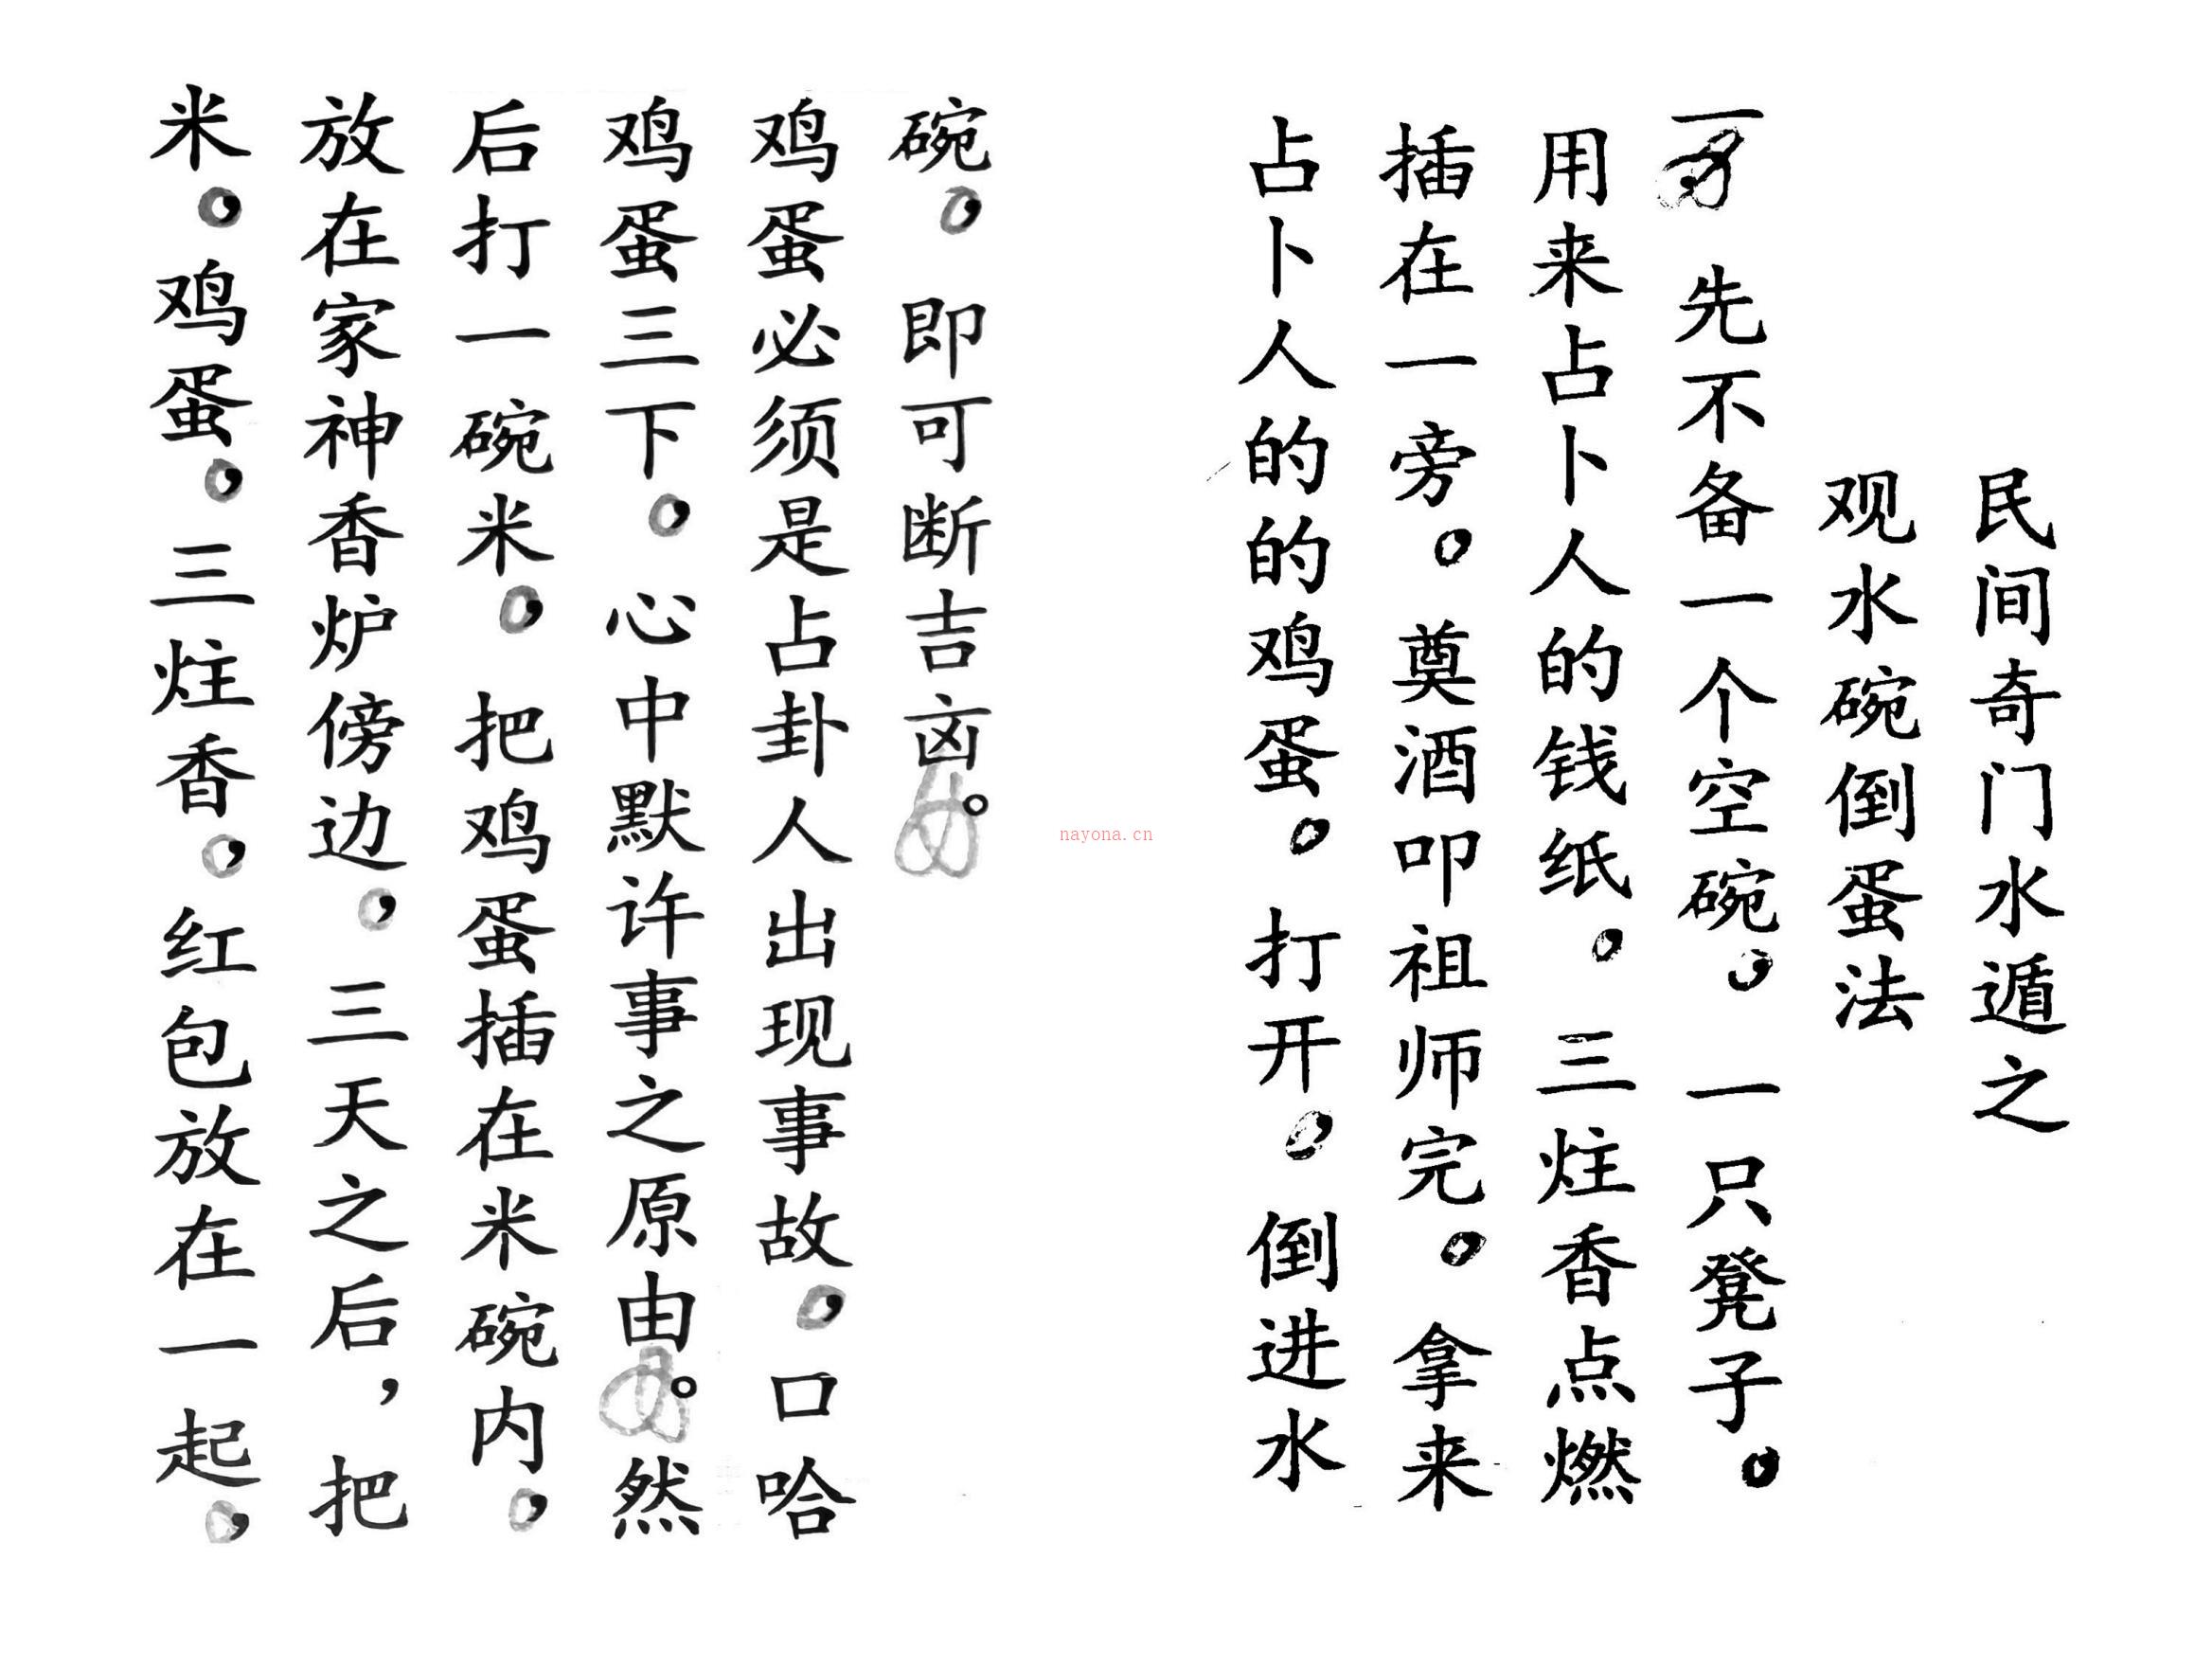 民间奇门水遁之
观水碗倒蛋法
一 先不备一个空碗。一只凳子。
用来占卜人的钱纸。三炷香点燃
插在一旁。奠酒叩祖师完。拿来
占卜人的的鸡蛋。打开。倒进水
碗。即可断吉㐫。
鸡蛋必须是占卦人出现事故。口哈
鸡蛋三下。心中默许事之原由。然
后打一碗米。把鸡蛋插在米碗内。
放在家神香炉傍边。三天之后，把
米。鸡蛋。三炷香。红包放在一起。
nayona.cn